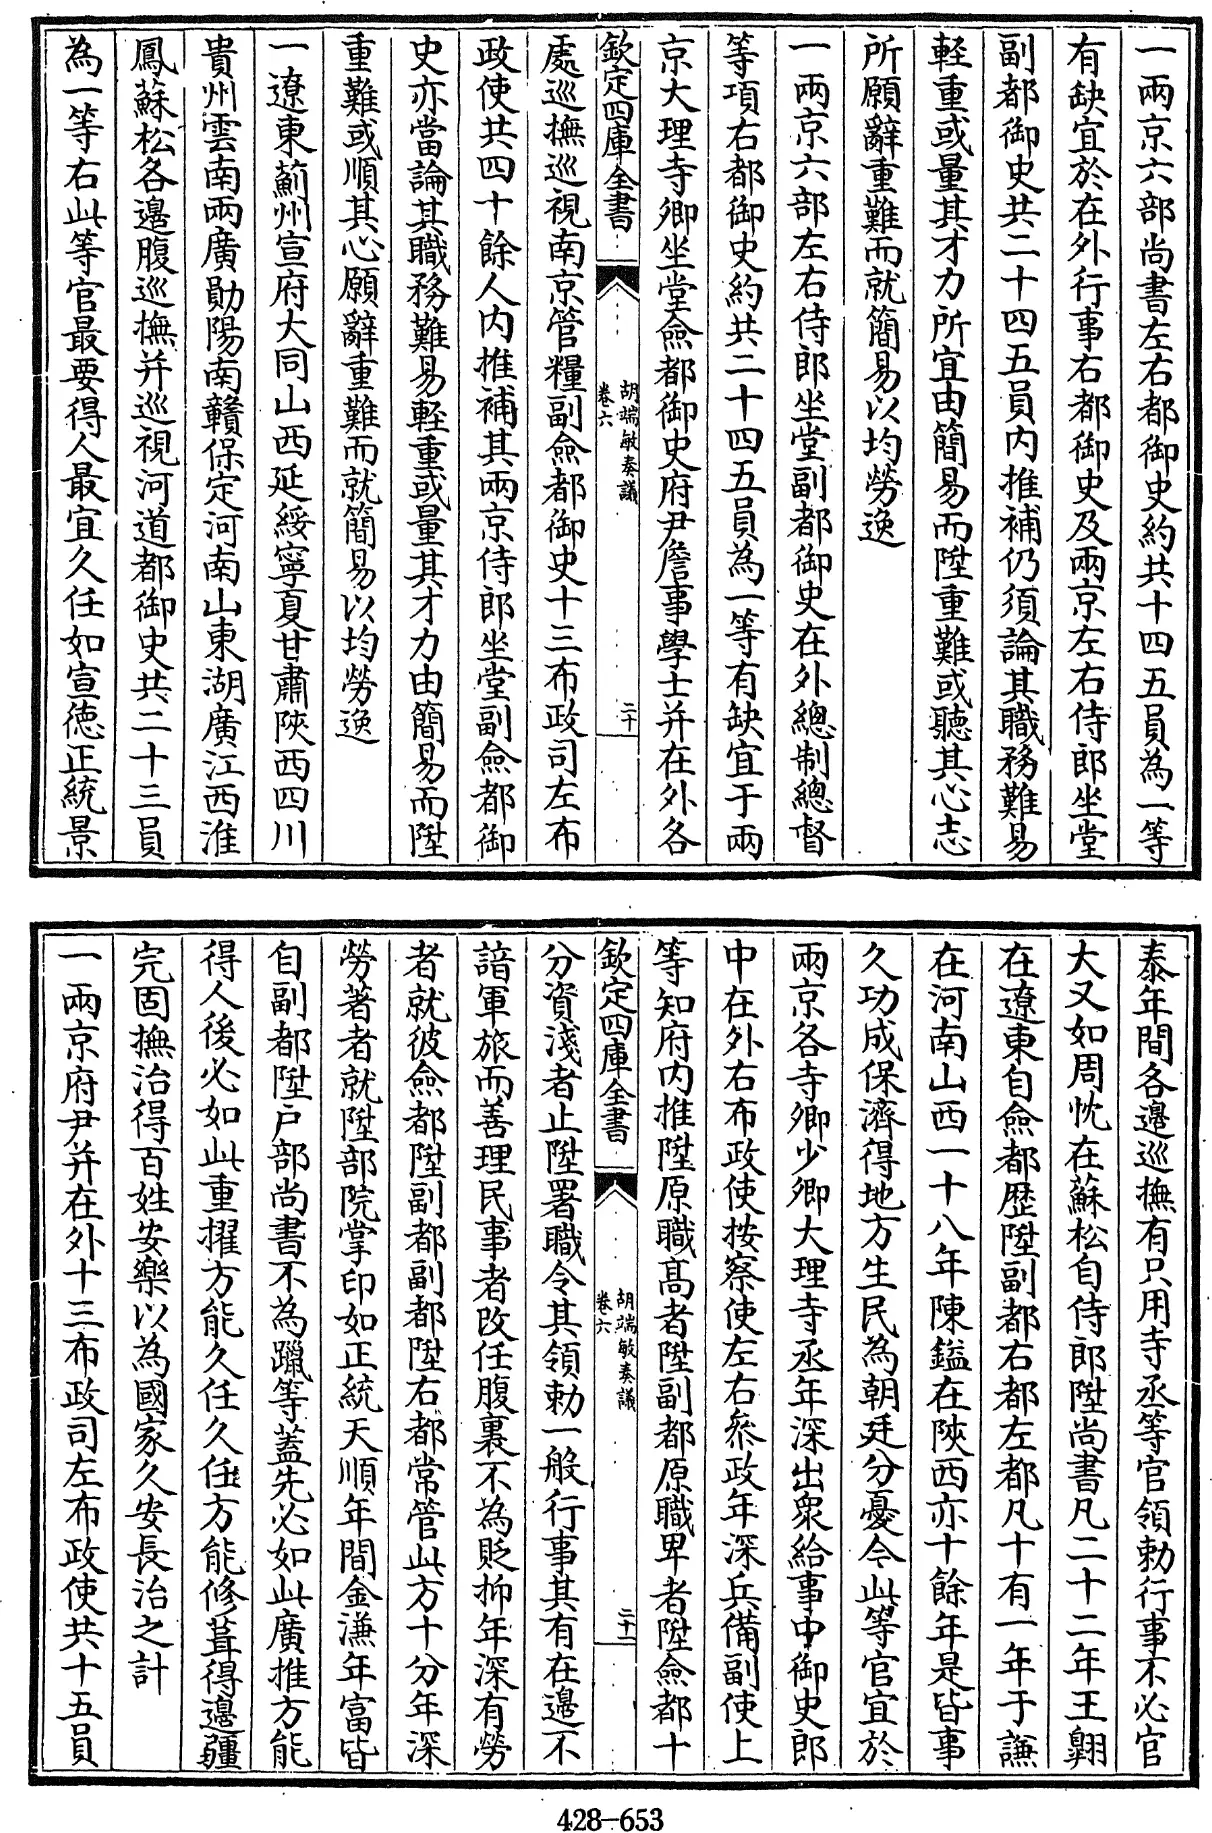 一兩京六部尚書左右都御史約共十四五員為一等
有缺宜於在外行事右都御史及兩京左右侍郎坐堂
副都御史共二十四五員内推補仍須論其職務難易
軽重或量其才力所宜由簡易而陞重難或聽其心志
所願辭重難而就簡易以均勞逸
一兩京六部左右侍郎坐堂副都御史在外總制總督
等項右都御史約共二十四五員為一等有缺宜于兩
京大理寺卿坐堂僉都御史府尹詹事學士并在外各
欽定四庫全書
胡端敏奏議
卷六
二十
處巡撫巡視南京管糧副僉都御史十三布政司左布
政使共四十餘人内推補其兩京侍郎坐堂副僉都御
史亦當論其職務難易軽重或量其才力由簡易而陞
重難或順其心願辭重難而就簡易以均勞逸
一遼東薊州宣府大同山西延綏寧夏甘肅陝西四川
貴州雲南兩廣勛陽南贛保定河南山東湖廣江西淮
鳳蘇松各邊腹巡撫并巡視河道都御史共二十三員
為一等右此等官最要得人最宜久任如宣徳正統景
泰年間各邊巡撫有只用寺丞等官領勅行事不必官
大又如周忱在蘇松自侍郎陞尚書凡二十二年王翺
在遼東自僉都歴陞副都右都左都凡十有一年于謙
在河南山西一十八年陳鎰在陝西亦十餘年是皆事
久功成保濟得地方生民為朝廷分憂今此等官宜於
兩京各寺卿少卿大理寺丞年深出衆給事中御史郎
中在外右布政使按察使左右叅政年深兵備副使上
等知府内推陞原職髙者陞副都原職卑者陞僉都十
欽定四庫全書
胡端敏奏議
卷六
二十一
分資淺者止陞署職令其領勅一般行事其有在邊不
諳軍旅而善理民事者改任腹裏不為貶抑年深有勞
者就彼僉都陞副都副都陞右都常管此方十分年深
勞著者就陞部院掌印如正統天順年間金濂年富皆
自副都陞户部尚書不為躐等蓋先必如此廣推方能
得人後必如此重擢方能久任久任方能修葺得邊疆
完固撫治得百姓安樂以為國家久安長治之計
一兩京府尹并在外十三布政司左布政使共十五員
428-653